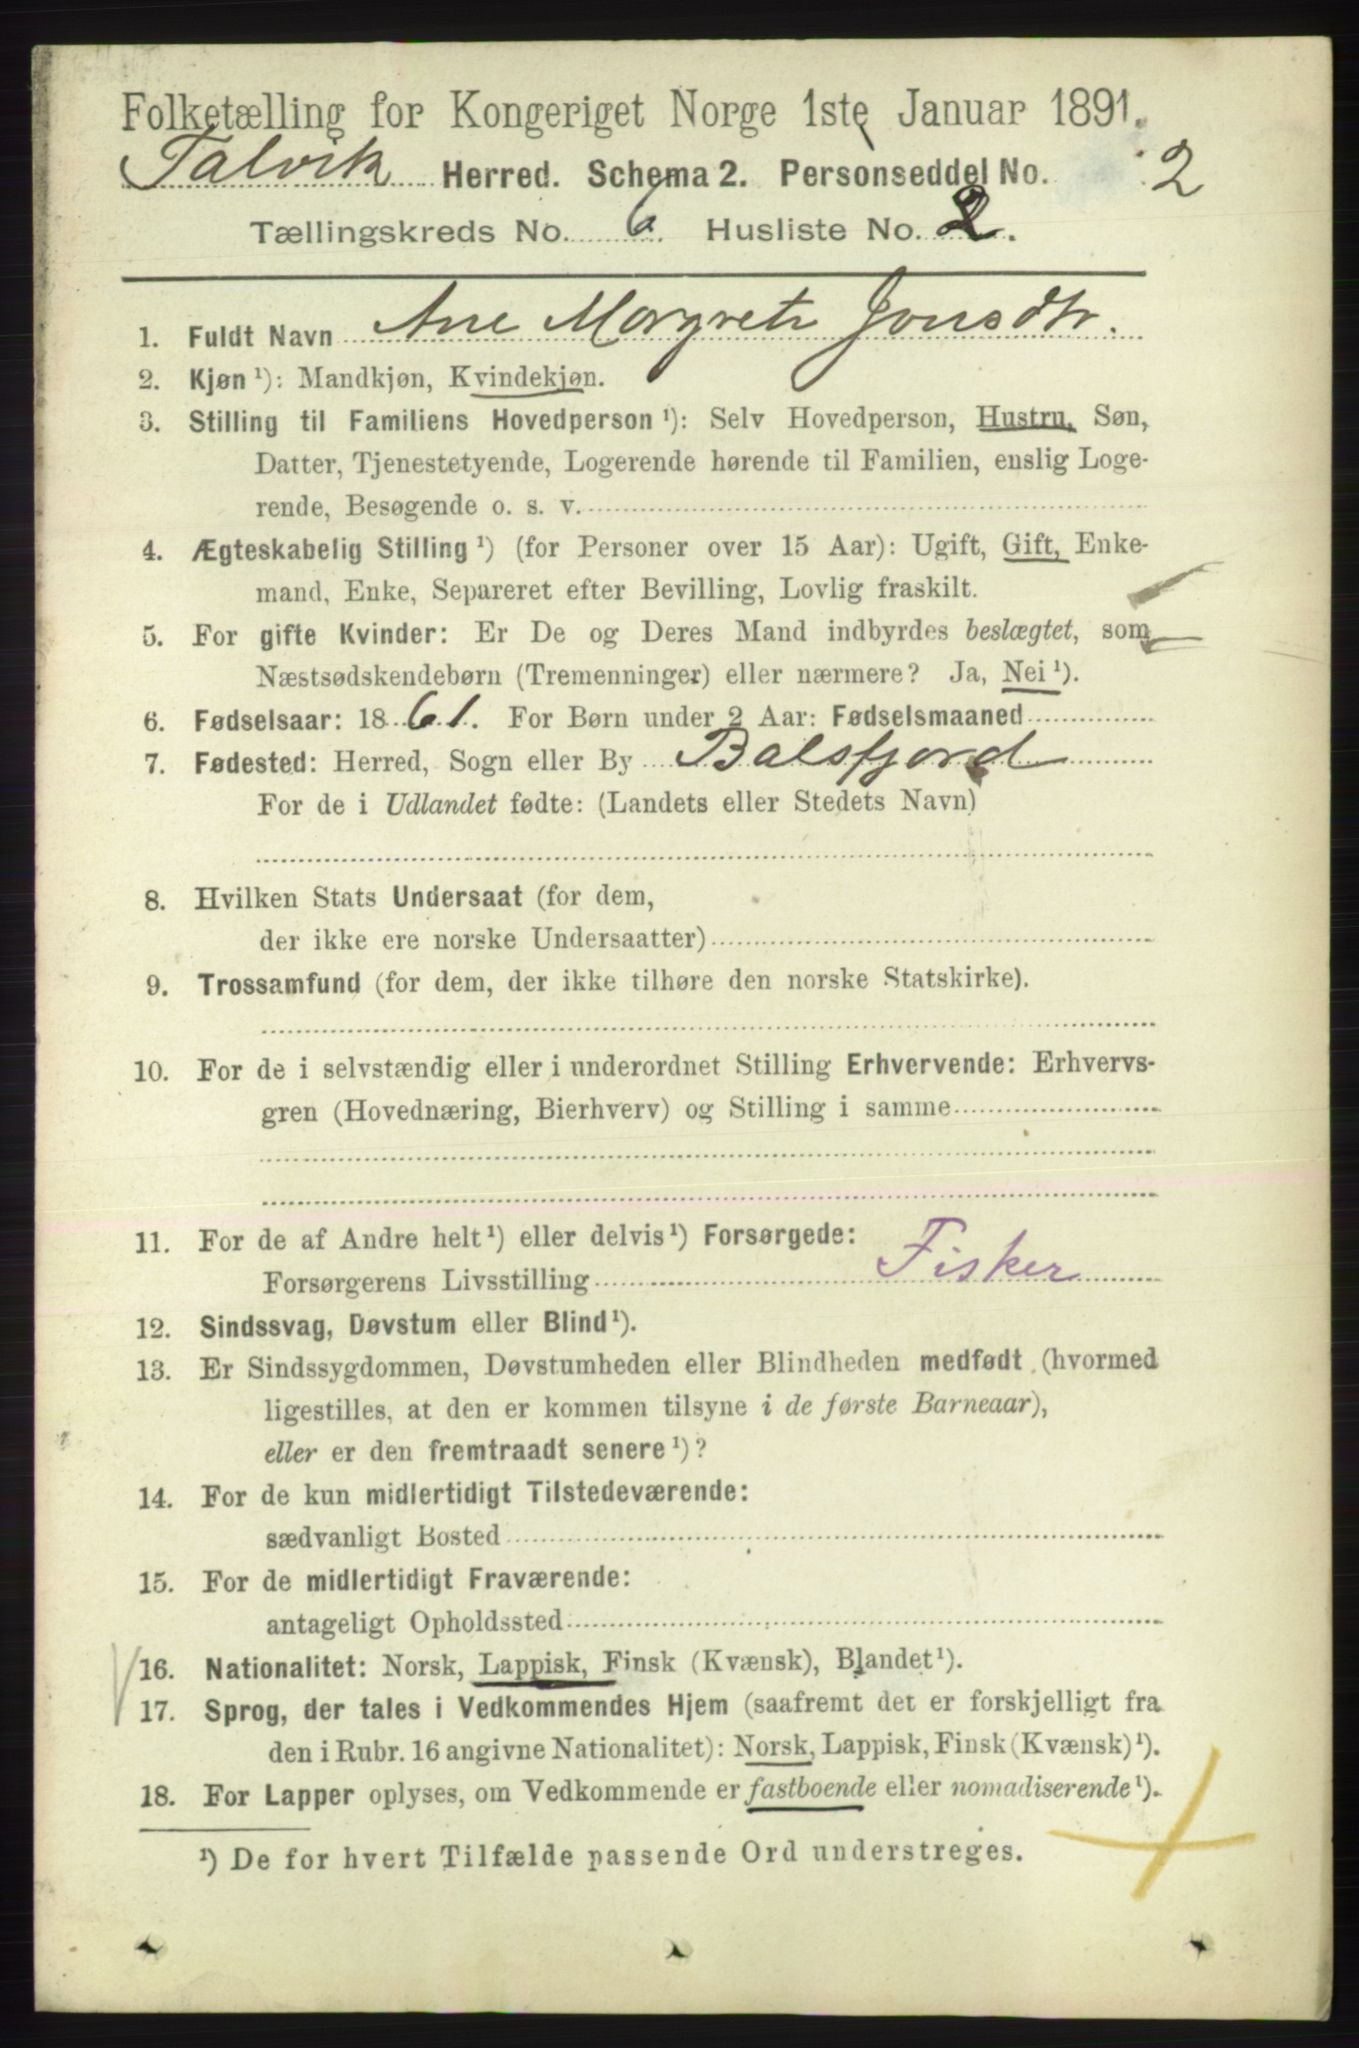 Folketælling for Kongeriget Norge 1ste Januar 1891.
Talvik Herred. Schema 2. Personseddel No. 2
Tællingskreds No. 6 Husliste No. 2.
1. Fuldt Navn Ane Margrete Jonsdtr.
2. Kjøn¹): Mandkjøn, Kvindekjøn.
3. Stilling til Familiens Hovedperson¹): Selv Hovedperson, Hustru, Søn,
Datter, Tjenestetyende, Logerende hørende til Familien, enslig Loge-
rende, Besøgende o. s. v.
4. Ægteskabelig Stilling¹) (for Personer over 15 Aar): Ugift, Gift, Enke-
mand, Enke, Separeret efter Bevilling, Lovlig fraskilt.
5. For gifte Kvinder: Er De og Deres Mand indbyrdes beslægtet, som
Næstsødskendebørn (Tremenninger) eller nærmere? Ja, Nei¹).
6. Fødselsaar: 1861. For Børn under 2 Aar: Fødselsmaaned
7. Fødested: Herred, Sogn eller By Balsfjord
For de i Udlandet fødte: (Landets eller Stedets Navn)
8. Hvilken Stats Undersaat (for dem,
der ikke ere norske Undersaatter)
9. Trossamfund (for dem, der ikke tilhøre den norske Statskirke).
10. For de i selvstændig eller i underordnet Stilling Erhvervende: Erhvervs-
gren (Hovednæring, Bierhverv) og Stilling i samme
11. For de af Andre helt¹) eller delvis¹) Forsørgede:
Forsørgerens Livsstilling Fisker
12. Sindssvag, Døvstum eller Blind¹).
13. Er Sindssygdommen, Døvstumheden eller Blindheden medfødt (hvormed
ligestilles, at den er kommen tilsyne i de første Barneaar),
eller er den fremtraadt senere¹)?
14. For de kun midlertidigt Tilstedeværende:
sædvanligt Bosted
15. For de midlertidigt Fraværende:
antageligt Opholdssted
16. Nationalitet: Norsk, Lappisk, Finsk (Kvænsk), Blandet¹).
17. Sprog, der tales i Vedkommendes Hjem (saafremt det er forskjelligt fra
den i Rubr. 16 angivne Nationalitet): Norsk, Lappisk, Finsk (Kvænsk)¹).
18. For Lapper oplyses, om Vedkommende er fastboende eller nomadiserende¹).
¹) De for hvert Tilfælde passende Ord understreges.